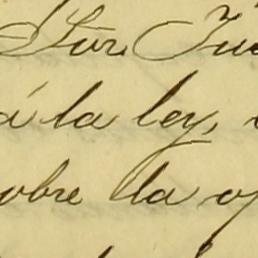 Sor. Jue
á la ley,
obre la o